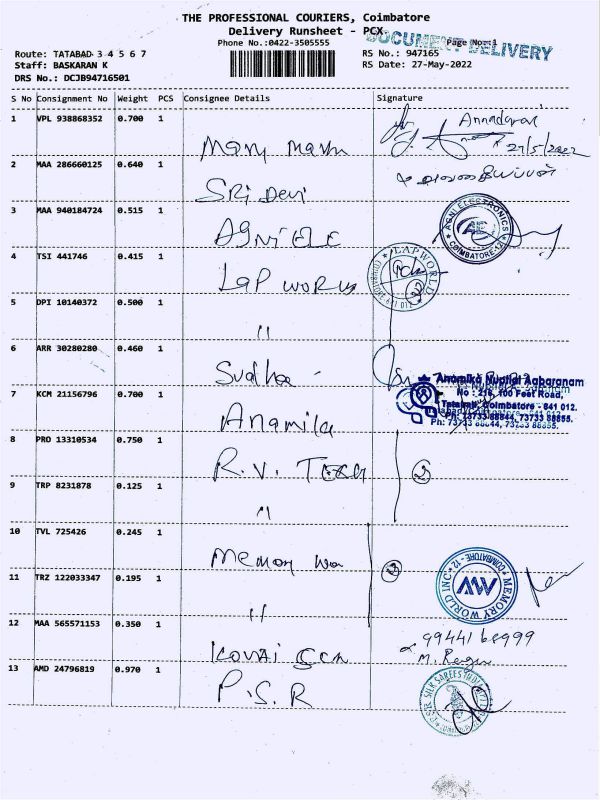 THE PROFESSIONAL COURIERS, Coimbatore
Delivery Runsheet - PCX
Phone No.:0422-3505555
DOCUMENT DELIVERY
Page No: 1
Route: TATABAD 3 4 5 6 7
RS No.: 947165
Staff: BASKARAN K
RS Date: 27-May-2022
DRS No.: DCJB94716501
S No Consignment No Weight PCS Consignee Details Signature
1 VPL 938868352 0.700 1
Annadurai
27/5/2022
2 MAA 286660125 0.640 1
SRi Devi
3 MAA 940184724 0.515 1
AGNI ELECTRONICS
AE
COIMBATORE-12
AGNi ELE
4 TSI 441746 0.415 1
LAP WORLD
COIMBATORE 641 012
LAP WORLD
5 DPI 10140372 0.500 1
"
6 ARR 30280280 0.460 1
Sudha
7 KCM 21156796 0.700 1
Anamika Nuptial Aabaranam
No : 218, 100 Feet Road,
Tatabad, Coimbatore - 641 012.
Ph: 73733 88844, 73733 88855.
Anamika
8 PRO 13310534 0.750 1
R.V. Tex
2
9 TRP 8231878 0.125 1
"
10 TVL 725426 0.245 1
Memory Wo
2
11 TRZ 122033347 0.195 1
MEMORY WORLD INC
COIMBATORE - 12
MW
"
12 MAA 565571153 0.350 1
KOVAI
99441 66999
13 AMD 24796819 0.970 1
P.S.R
PSR SILK SAREES